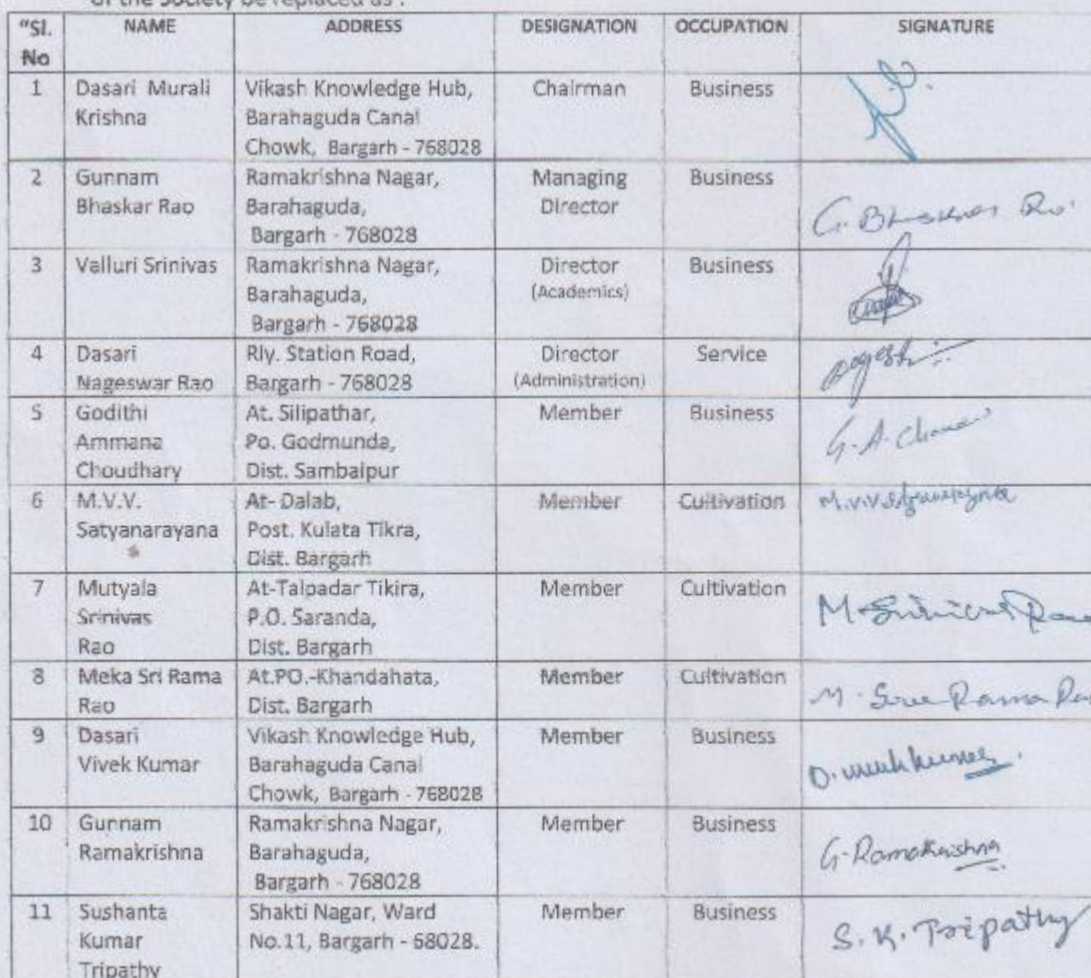 of the Society be replaced as :
"Sl. No NAME ADDRESS DESIGNATION OCCUPATION SIGNATURE
1 Dasari Murali Krishna Vikash Knowledge Hub, Barahaguda Canal Chowk, Bargarh - 768028 Chairman Business
2 Gunnam Bhaskar Rao Ramakrishna Nagar, Barahaguda, Bargarh - 768028 Managing Director Business G. Bhaskar Rao
3 Valluri Srinivas Ramakrishna Nagar, Barahaguda, Bargarh - 768028 Director (Academics) Business
4 Dasari Nageswar Rao Rly. Station Road, Bargarh - 768028 Director (Administration) Service
5 Godithi Ammana Choudhary At. Silipathar, Po. Godmunda, Dist. Sambalpur Member Business G. A.
6 M.V.V. Satyanarayana At- Dalab, Post. Kulata Tikra, Dist. Bargarh Member Cultivation M.V.V. Satyanarayana
7 Mutyala Srinivas Rao At-Talpadar Tikira, P.O. Saranda, Dist. Bargarh Member Cultivation M. Srinivas Rao
8 Meka Sri Rama Rao At.PO.-Khandahata, Dist. Bargarh Member Cultivation M. Sree Rama Rao
9 Dasari Vivek Kumar Vikash Knowledge Hub, Barahaguda Canal Chowk, Bargarh - 768028 Member Business D. Vivek Kumar
10 Gunnam Ramakrishna Ramakrishna Nagar, Barahaguda, Bargarh - 768028 Member Business G. Ramakrishna
11 Sushanta Kumar Tripathy Shakti Nagar, Ward No.11, Bargarh - 68028. Member Business S. K. Tripathy